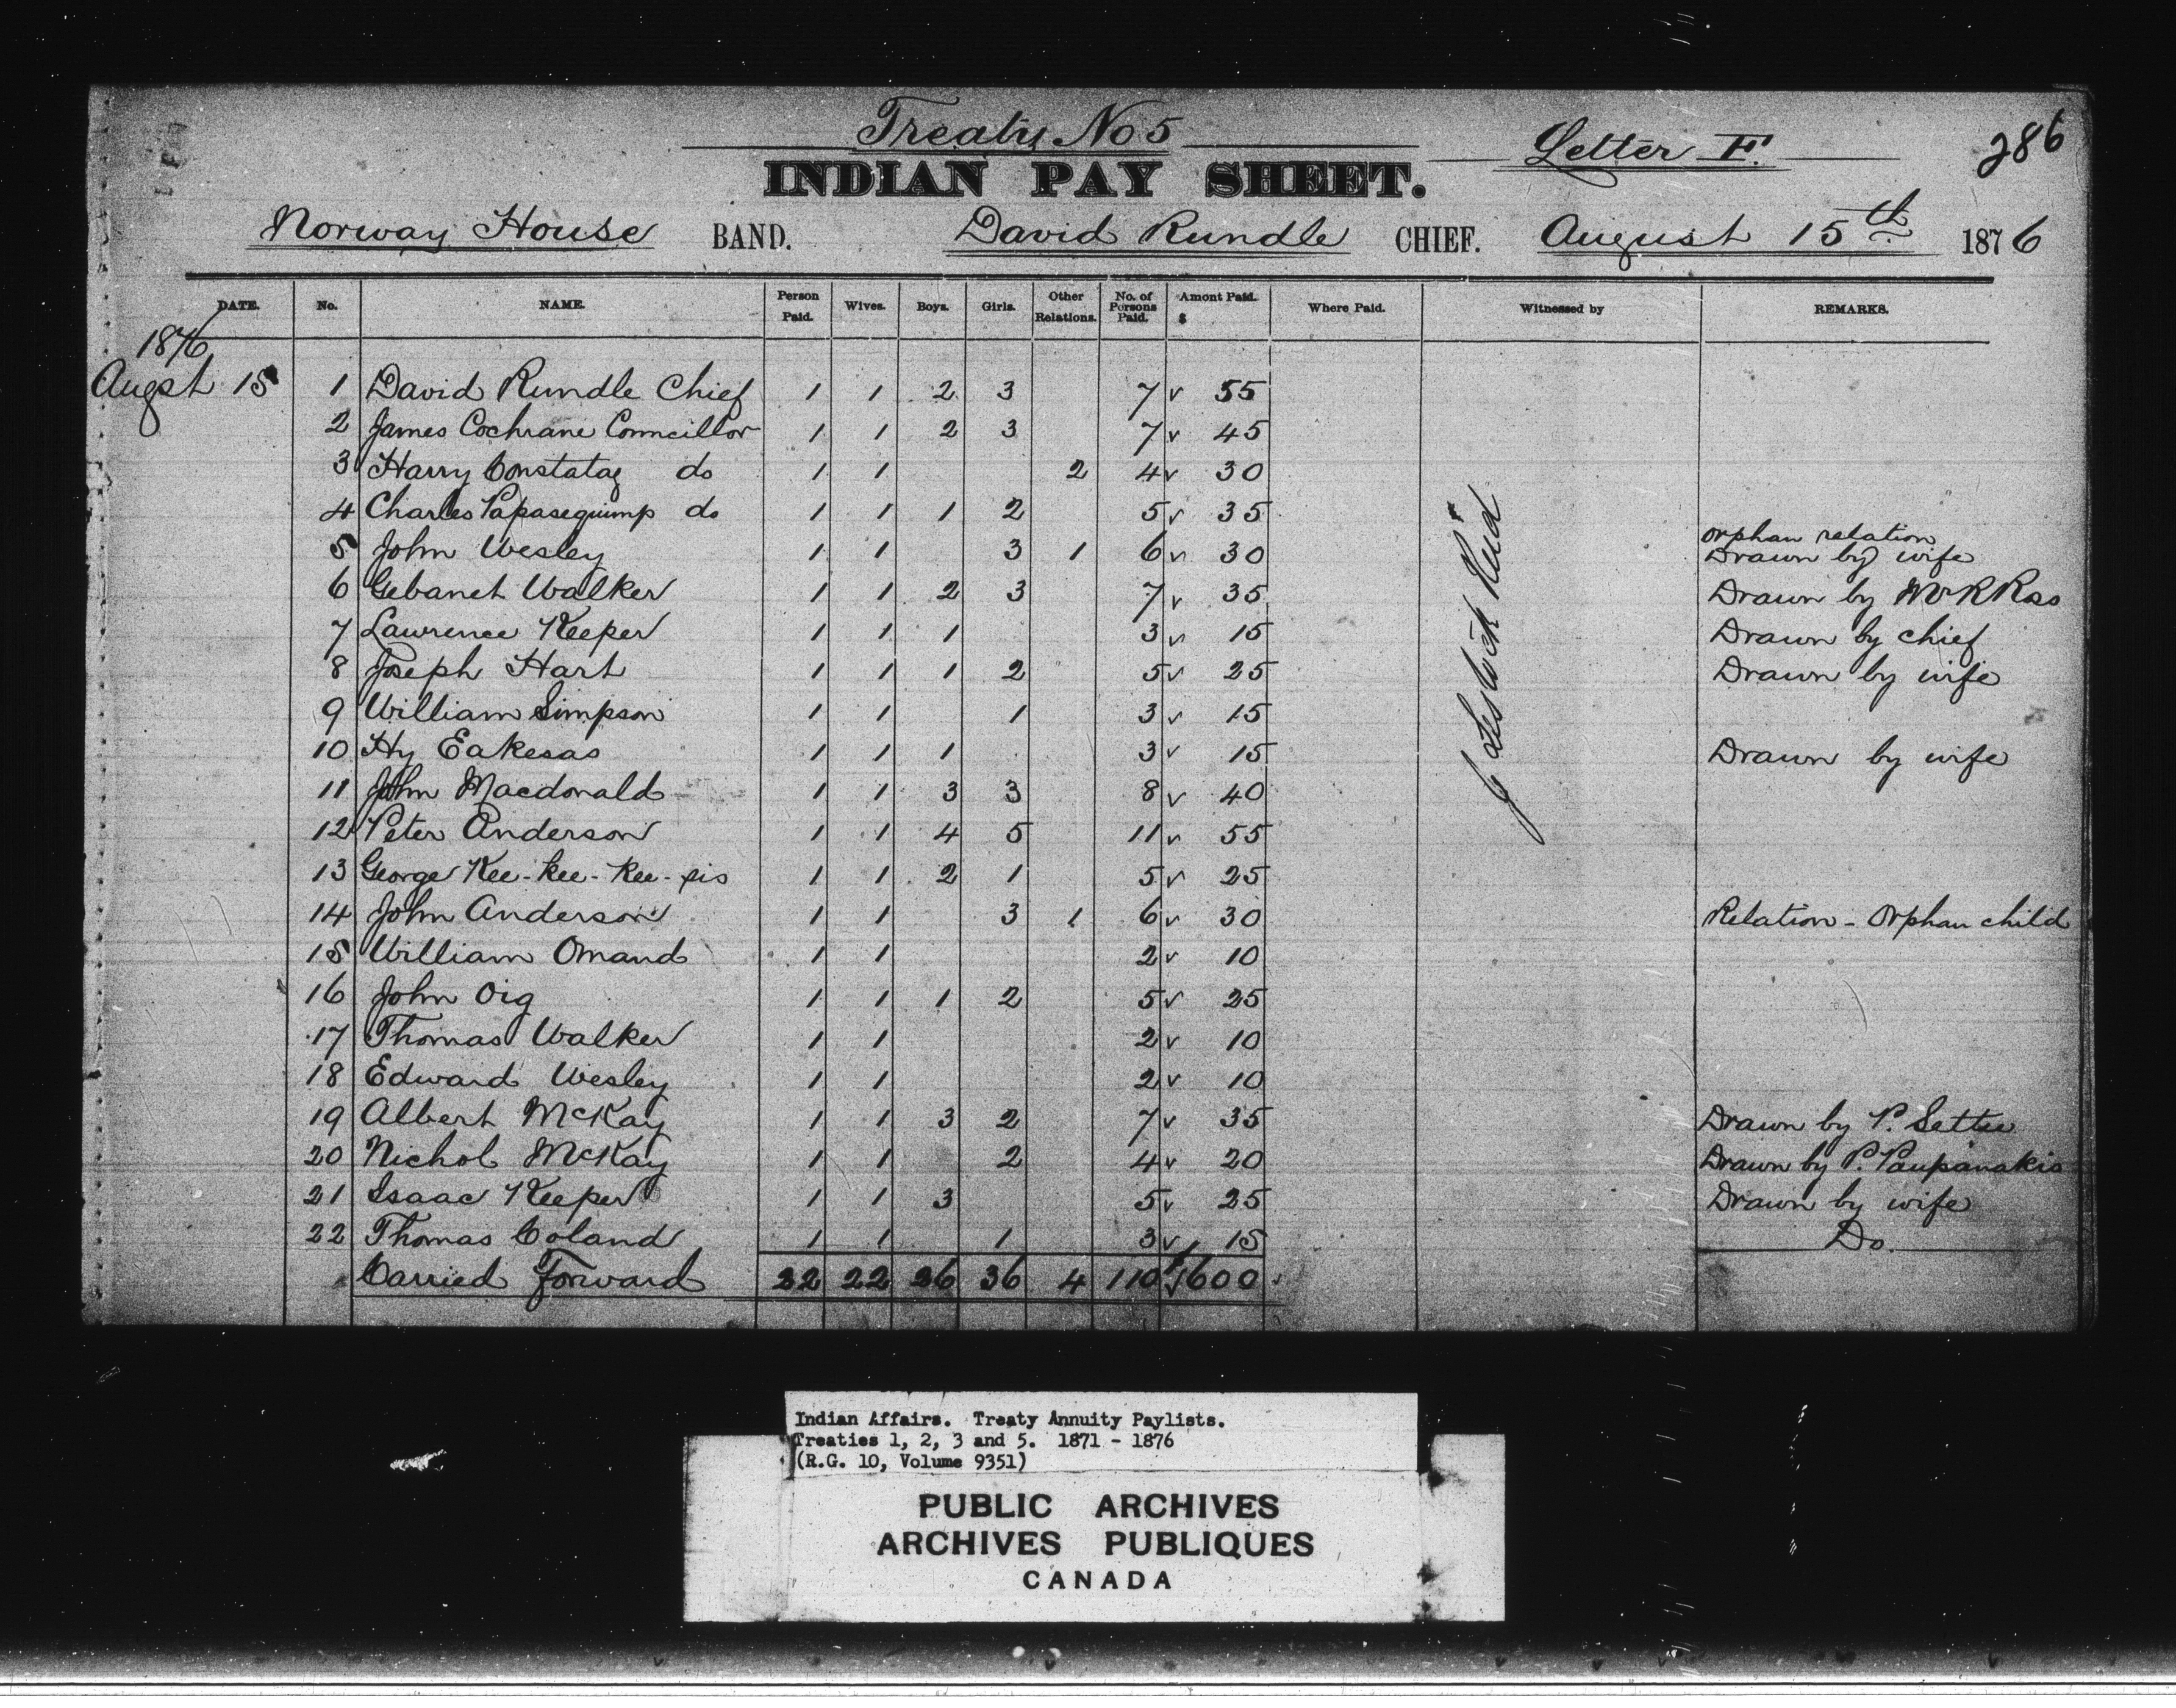 Treaty No 5
Letter F.
286
INDIAN PAY SHEET.
Norway House BAND. David Rundle CHIEF. August 15th 1876
DATE. No. NAME. Person Paid. Wives. Boys. Girls. Other Relations. No. of Persons Paid. Amont Paid. $ Where Paid. Witnessed by REMARKS.
1876
Augst 15 1 David Rundle Chief 1 1 2 3 7 v 55
2 James Cochrane Councillor 1 1 2 3 7 v 45
3 Harry Constatag do 1 1 2 4 v 30
4 Charles Papasequimp do 1 1 1 2 5 v 35
orphan relation
5 John Wesley 1 1 3 1 6 v 30 Drawn by wife
6 Gebanet Walker 1 1 2 3 7 v 35 Drawn by Mr R Ross
7 Lawrence Keeper 1 1 1 3 v 15 Drawn by chief
8 Joseph Hart 1 1 1 2 5 v 25 Drawn by wife
9 William Simpson 1 1 1 3 v 15
10 Hy Eakesas 1 1 1 3 v 15 Drawn by wife
11 John Macdonald 1 1 3 3 8 v 40
12 Peter Anderson 1 1 4 5 11 v 55
13 George Kee-kee-kee-sis 1 1 2 1 5 v 25
14 John Anderson 1 1 3 1 6 v 30 Relation - Orphan child
15 William Omand 1 1 2 v 10
16 John Oig 1 1 1 2 5 v 25
17 Thomas Walker 1 1 2 v 10
18 Edward Wesley 1 1 2 v 10
19 Albert McKay 1 1 3 2 7 v 35 Drawn by P. Settee
20 Nichol McKay 1 1 2 4 v 20 Drawn by P. Paupanakis
21 Isaac Keeper 1 1 3 5 v 25 Drawn by wife
22 Thomas Coland 1 1 1 3 v 15 Do.
Carried Forward 22 22 26 36 4 110 $600
J Lestock Reid
Indian Affairs. Treaty Annuity Paylists.
Treaties 1, 2, 3 and 5. 1871 - 1876
(R.G. 10, Volume 9351)
PUBLIC ARCHIVES
ARCHIVES PUBLIQUES
CANADA